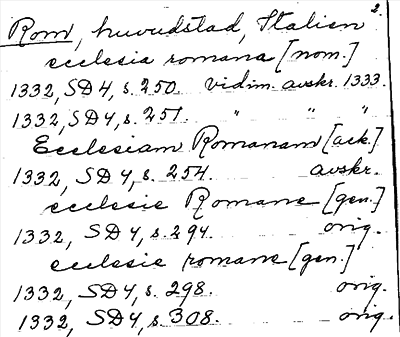 2.
Rom, huvudstad, Italien
ecclesia romana [nom.]
1332, SD4, s. 250. vidim. avskr. 1333.
1332, SD4, s. 251. " " "
Ecclesiam Romanam [ack.]
1332, SD4, s. 254. avskr.
ecclesie Romane [gen.]
1332, SD4, s. 294. orig.
ecclesie romane [gen.]
1332, SD4, s. 298. orig.
1332, SD4, s. 308. orig.